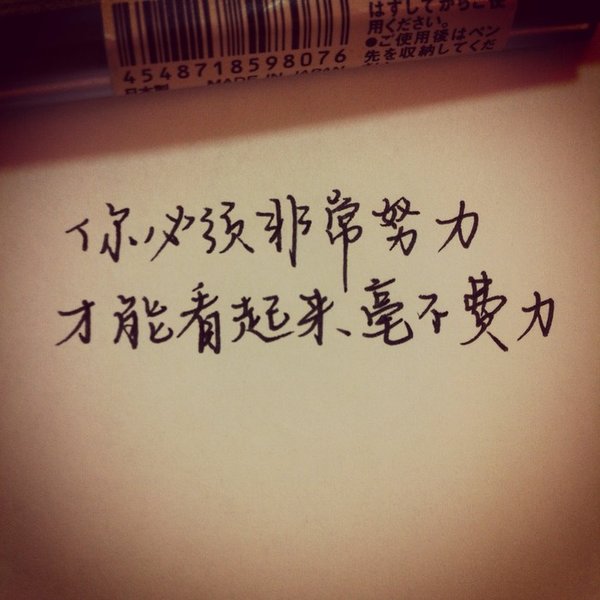 はずしてからご使
用ください。
●ご使用後はペン
先を収納してくだ
4548718598076
日本製 MADE IN JAPAN
你必须非常努力
才能看起来、毫不费力